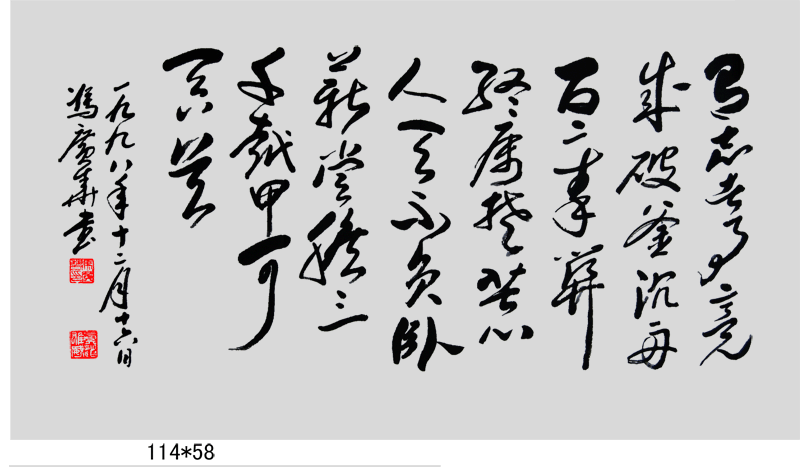 有志者事竟
成破釜沉舟
百二秦关
终属楚苦心
人天不负卧
薪尝胆三
千越甲可
吞吴
一九九八年十二月十六日
馮廣華书
114*58